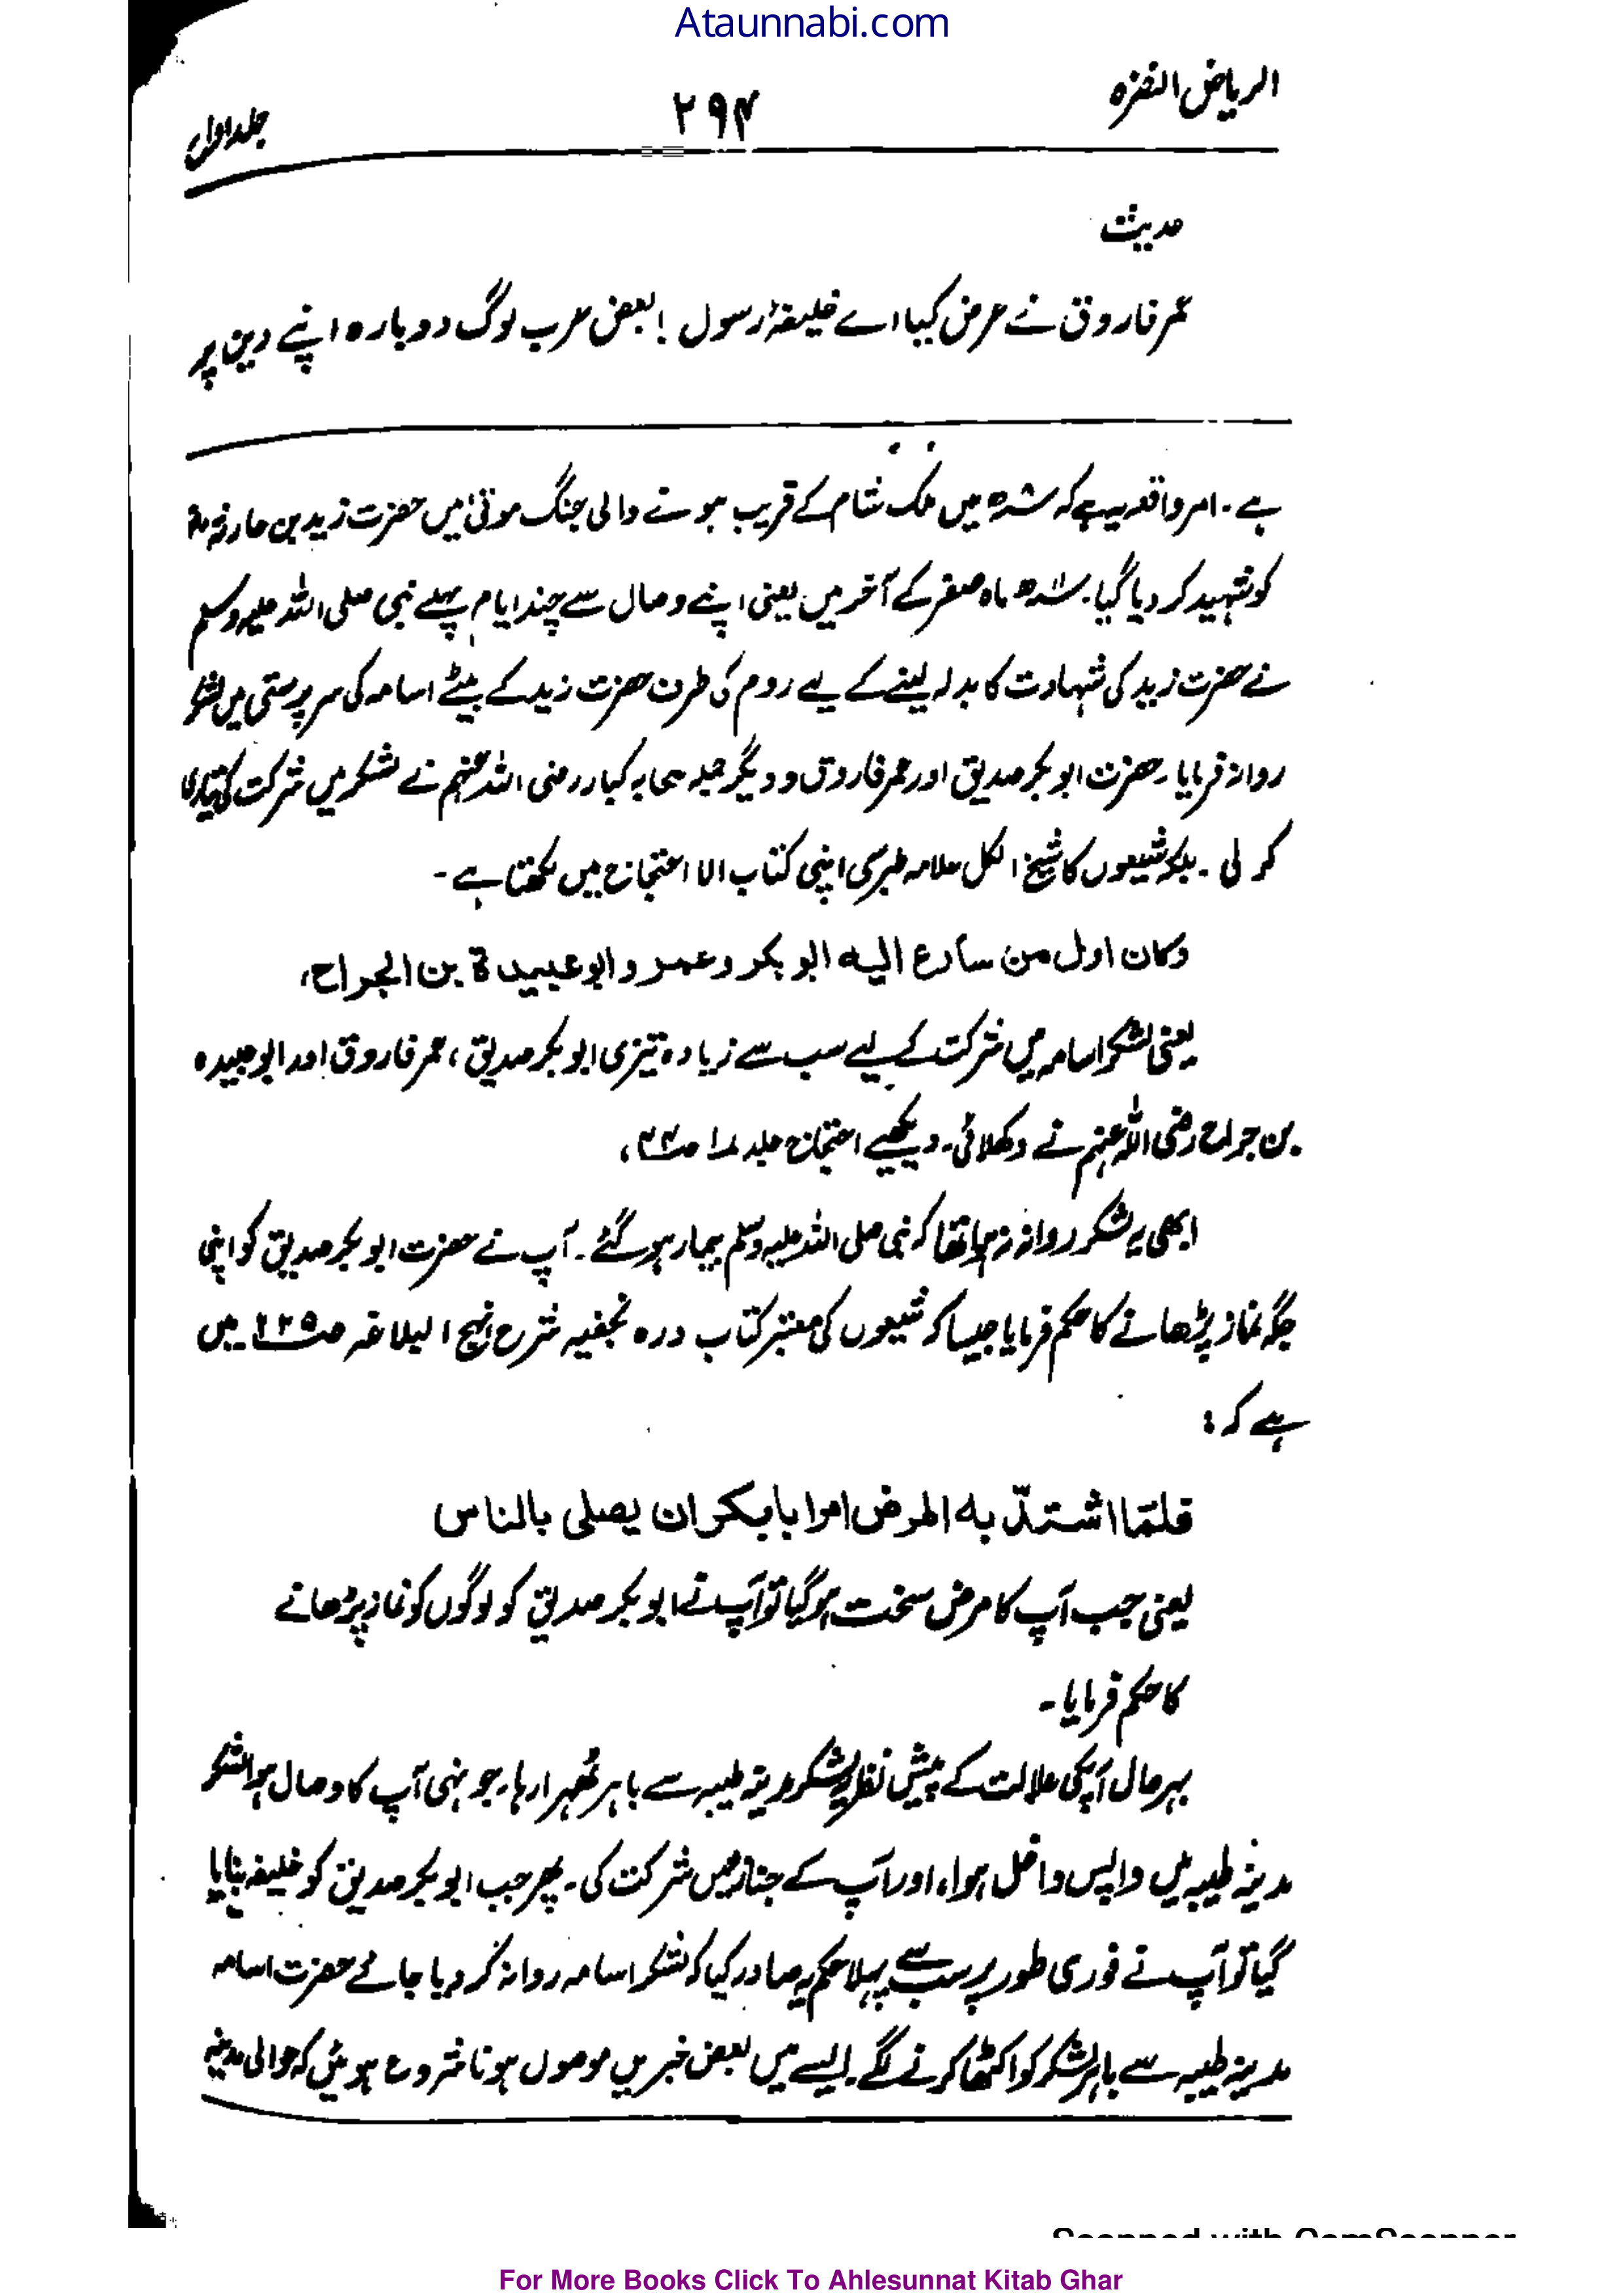 Ataunnabi.com
الریاض النضرہ
۲۹۴
جلد اول
حدیث
عمر فاروق نے عرض کیا اے خلیفۂ رسول! بعض عرب لوگ دوبارہ اپنے دین پر
ہے۔ امر واقعہ یہ ہے کہ ۸ھ میں ملک شام کے قریب ہونے والی جنگ موتیٰ میں حضرت زید بن حارثہ
کو شہید کر دیا گیا۔ ۱۱ھ ماہ صفر کے آخر میں یعنی اپنے وصال سے چند ایام پہلے نبی صلی اللہ علیہ وسلم
نے حضرت زید کی شہادت کا بدلہ لینے کے لیے روم کی طرف حضرت زید کے بیٹے اسامہ کی سرپرستی میں لشکر
روانہ فرمایا۔ حضرت ابوبکر صدیق اور عمر فاروق و دیگر جملہ صحابہ کبار رضی اللہ عنہم نے لشکر میں شرکت کی تیاری
کر لی۔ بلکہ شیعوں کا شیخ الکل علامہ طبرسی اپنی کتاب الا احتجاج میں لکھتا ہے۔
وکان اول من سارع الیه ابو بکر و عمر و ابو عبیدة بن الجراح،
یعنی لشکر اسامہ میں شرکت کے لیے سب سے زیادہ تیزی ابوبکر صدیق، عمر فاروق اور ابو عبیدہ
بن جراح رضی اللہ عنہم نے دکھلائی۔ دیکھیے احتجاج جلد ۱
ابھی یہ لشکر روانہ نہ ہوا تھا کہ نبی صلی اللہ علیہ وسلم بیمار ہو گئے۔ آپ نے حضرت ابوبکر صدیق کو اپنی
جگہ نماز پڑھانے کا حکم فرمایا جیسا کہ شیعوں کی معتبر کتاب درہ نجفیہ شرح نہج البلاغہ ص۲۲۵ میں
ہے کہ:
فلمّا اشتدّ به المرض امر ابا بکر ان یصلی بالناس
یعنی جب آپ کا مرض سخت ہو گیا تو آپ نے ابوبکر صدیق کو لوگوں کو نماز پڑھانے
کا حکم فرمایا۔
بہرحال آپ کی علالت کے پیش نظر یہ لشکر مدینہ طیبہ سے باہر ٹھہرا رہا۔ جونہی آپ کا وصال ہوا لشکر
مدینہ طیبہ میں واپس داخل ہوا، اور آپ کے جنازہ میں شرکت کی۔ پھر جب ابوبکر صدیق کو خلیفہ بنایا
گیا تو آپ نے فوری طور پر سب سے پہلا حکم یہ صادر کیا کہ لشکر اسامہ روانہ کر دیا جائے حضرت اسامہ
مدینہ طیبہ سے باہر لشکر کو اکٹھا کرنے لگے۔ ایسے میں بعض خبریں موصول ہونا شروع ہوئیں کہ حوالی مدینہ
Scanned with CamScanner
For More Books Click To Ahlesunnat Kitab Ghar